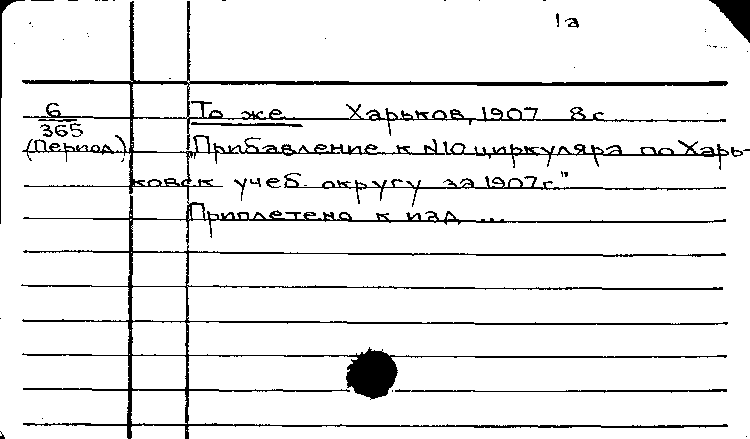 1а
6
365
(Период)
То же Харьков, 1907 8 с
"Прибавление к №10 циркуляра по Харь-
ковск учеб. округу за 1907г."
Приплетено к изд ...